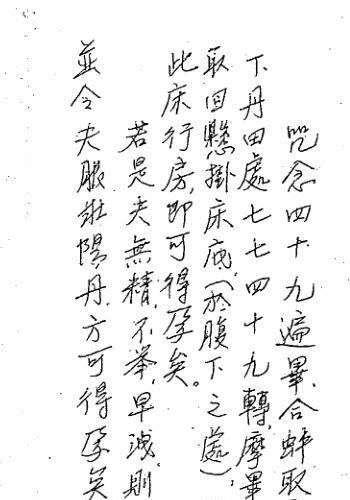 咒念四十九遍畢、合蚌取
下丹田處七七四十九轉,摩畢
取回懸掛床底(於腹下之處),
此床行房,即可得孕矣。
若是夫無精,不举,早洩,則
並令夫服壯陽丹,方可得孕矣